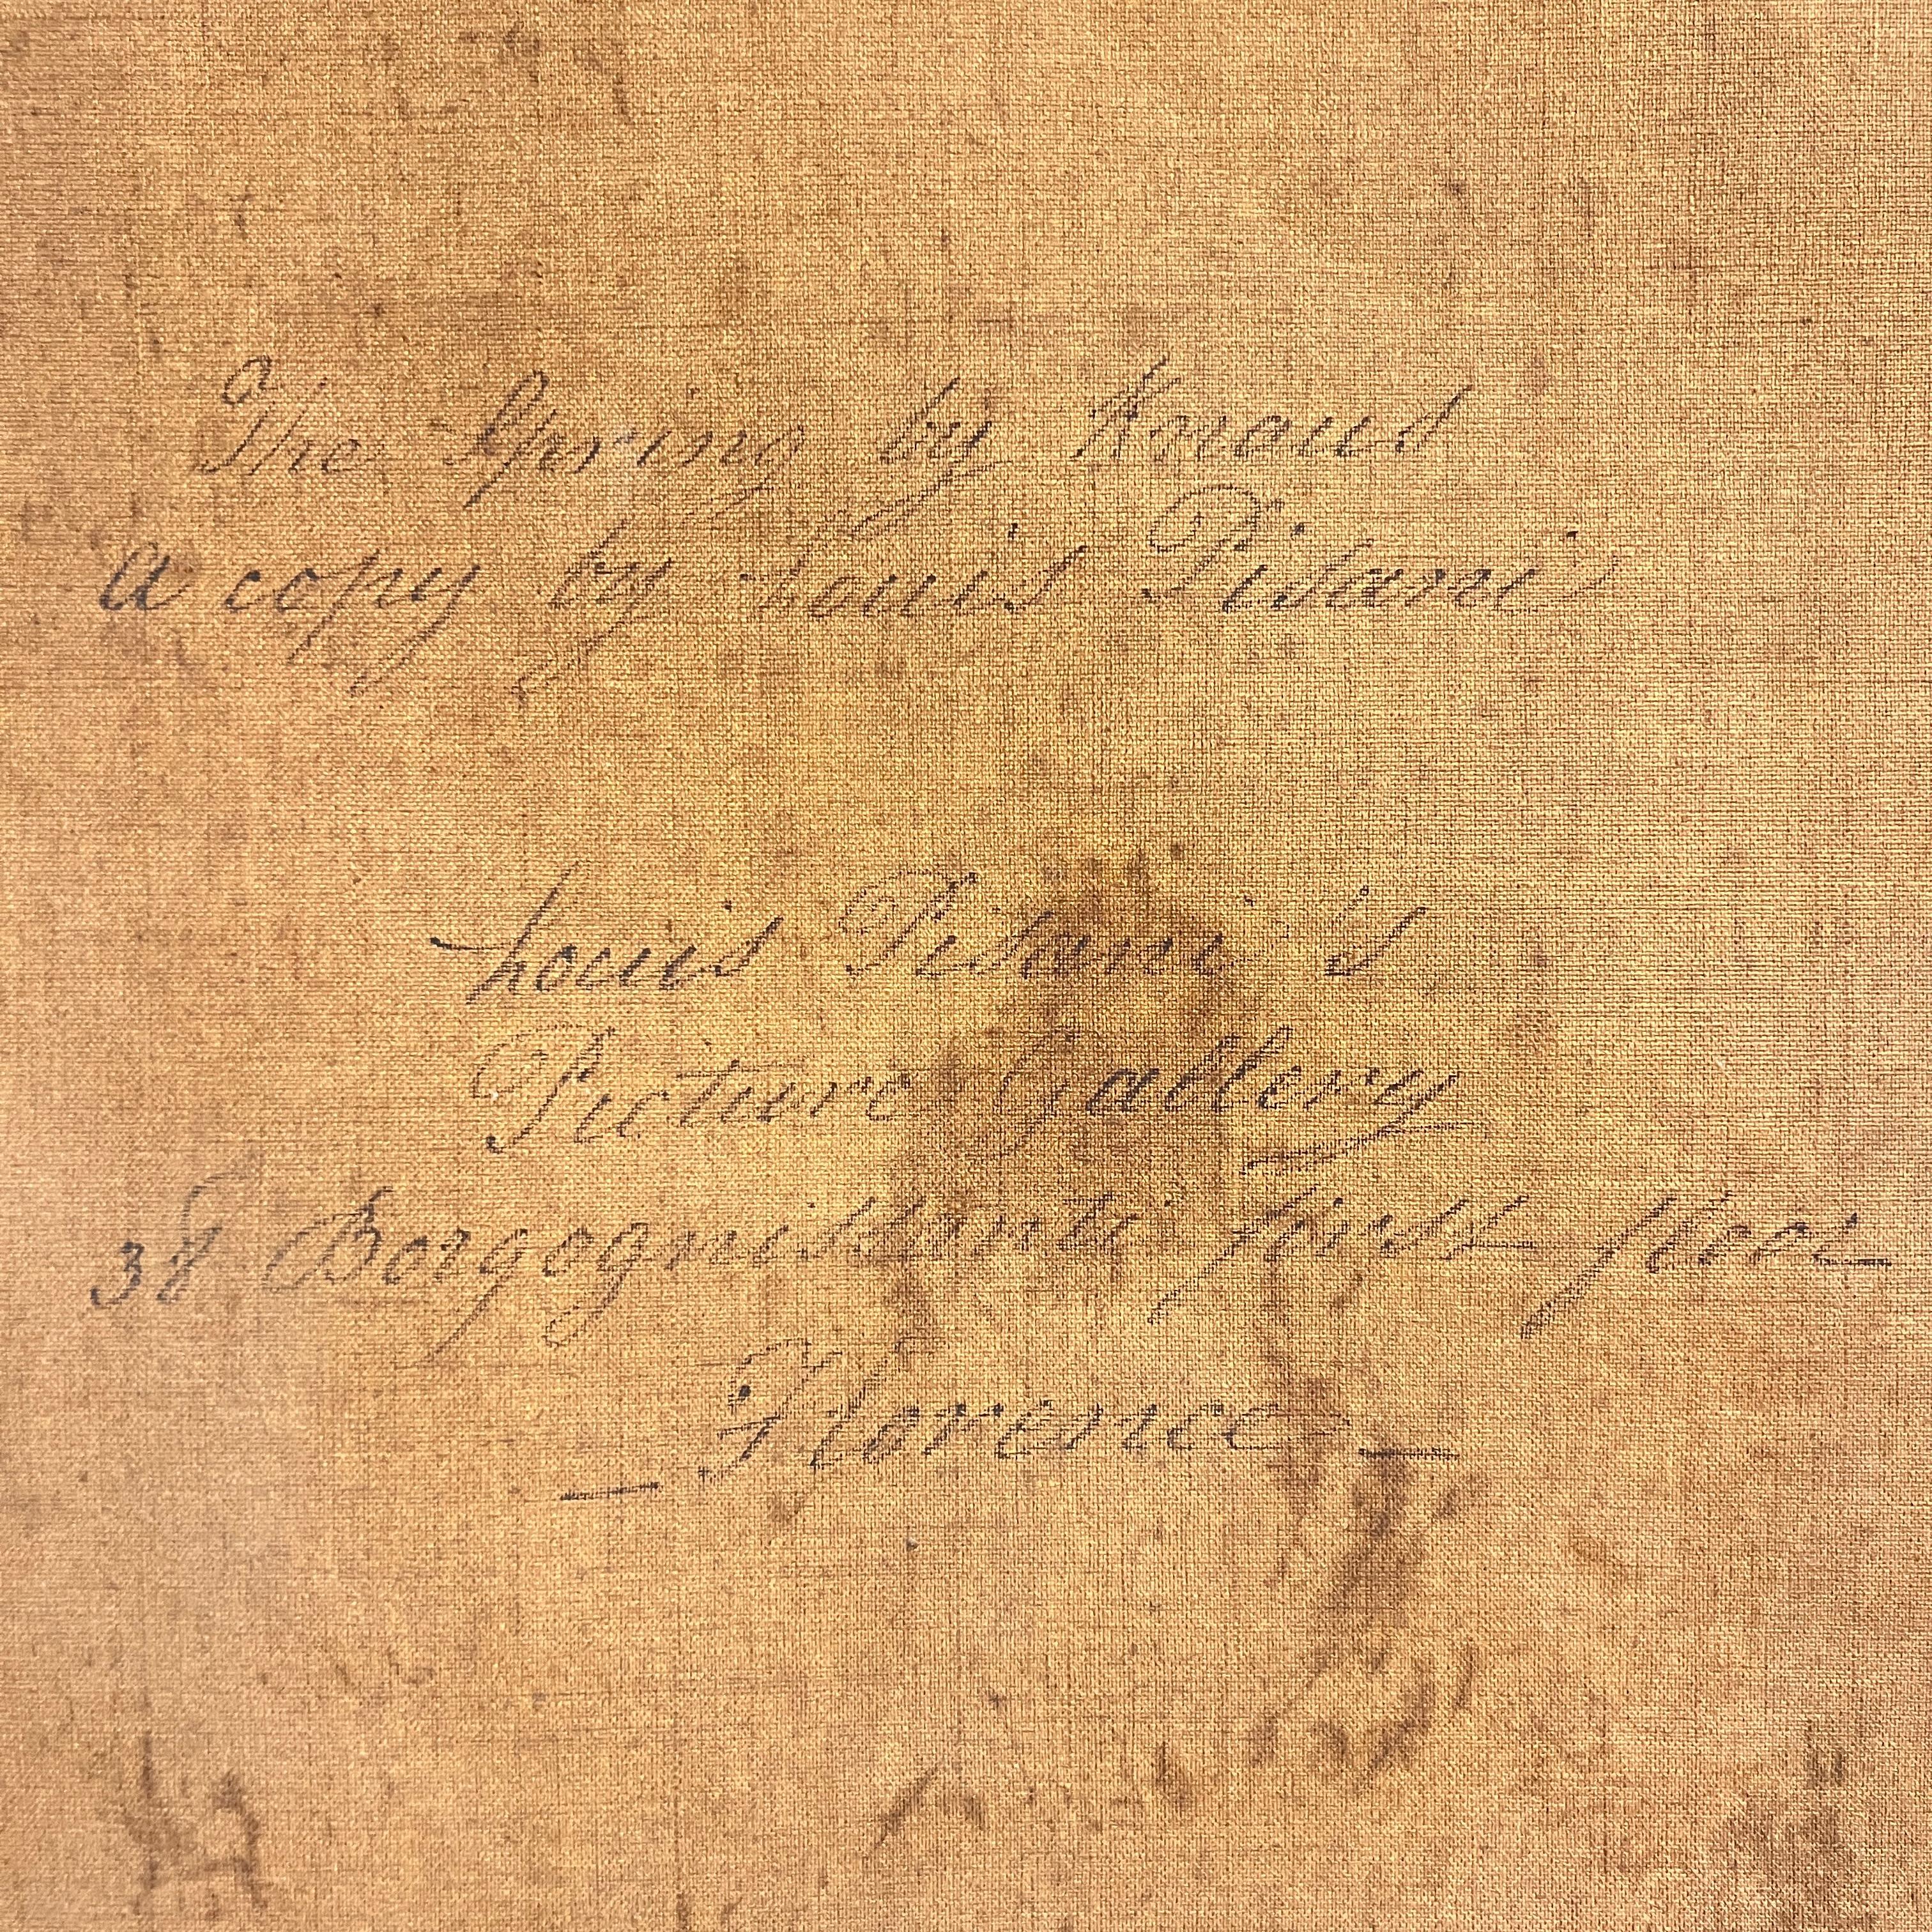 The Spring by Knaus
a copy by Louis Pisani's
Louis Pisani's
Picture Gallery
38 Borgognissanti first floor
— Florence —